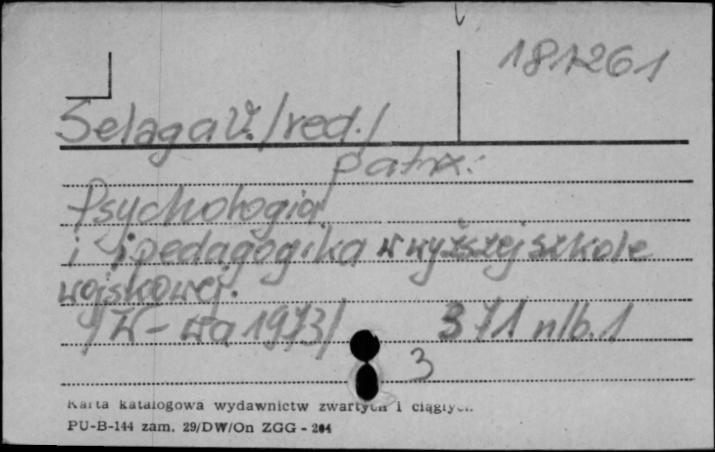 181261
Selaga V. /red./
patrz:
Psychologia
i pedagogika w wyższej szkole
wojskowej.
/W-wa 1973/ 371 nlb. 1
3
Karta katalogowa wydawnictw zwartych i ciągłych.
PU-B-144 zam. 29/DW/On ZGG - 204